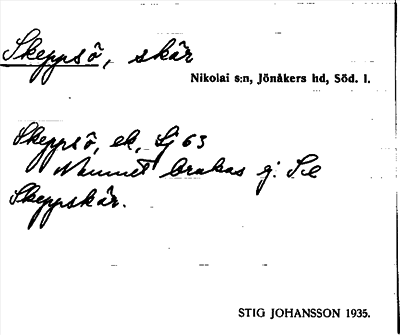 Skeppsö, skär
Nikolai s:n, Jönåkers hd, Söd. l.
Skeppsö, ek, Sj 63
Namnet brukas ej. Se
Skeppskär.
STIG JOHANSSON 1935.